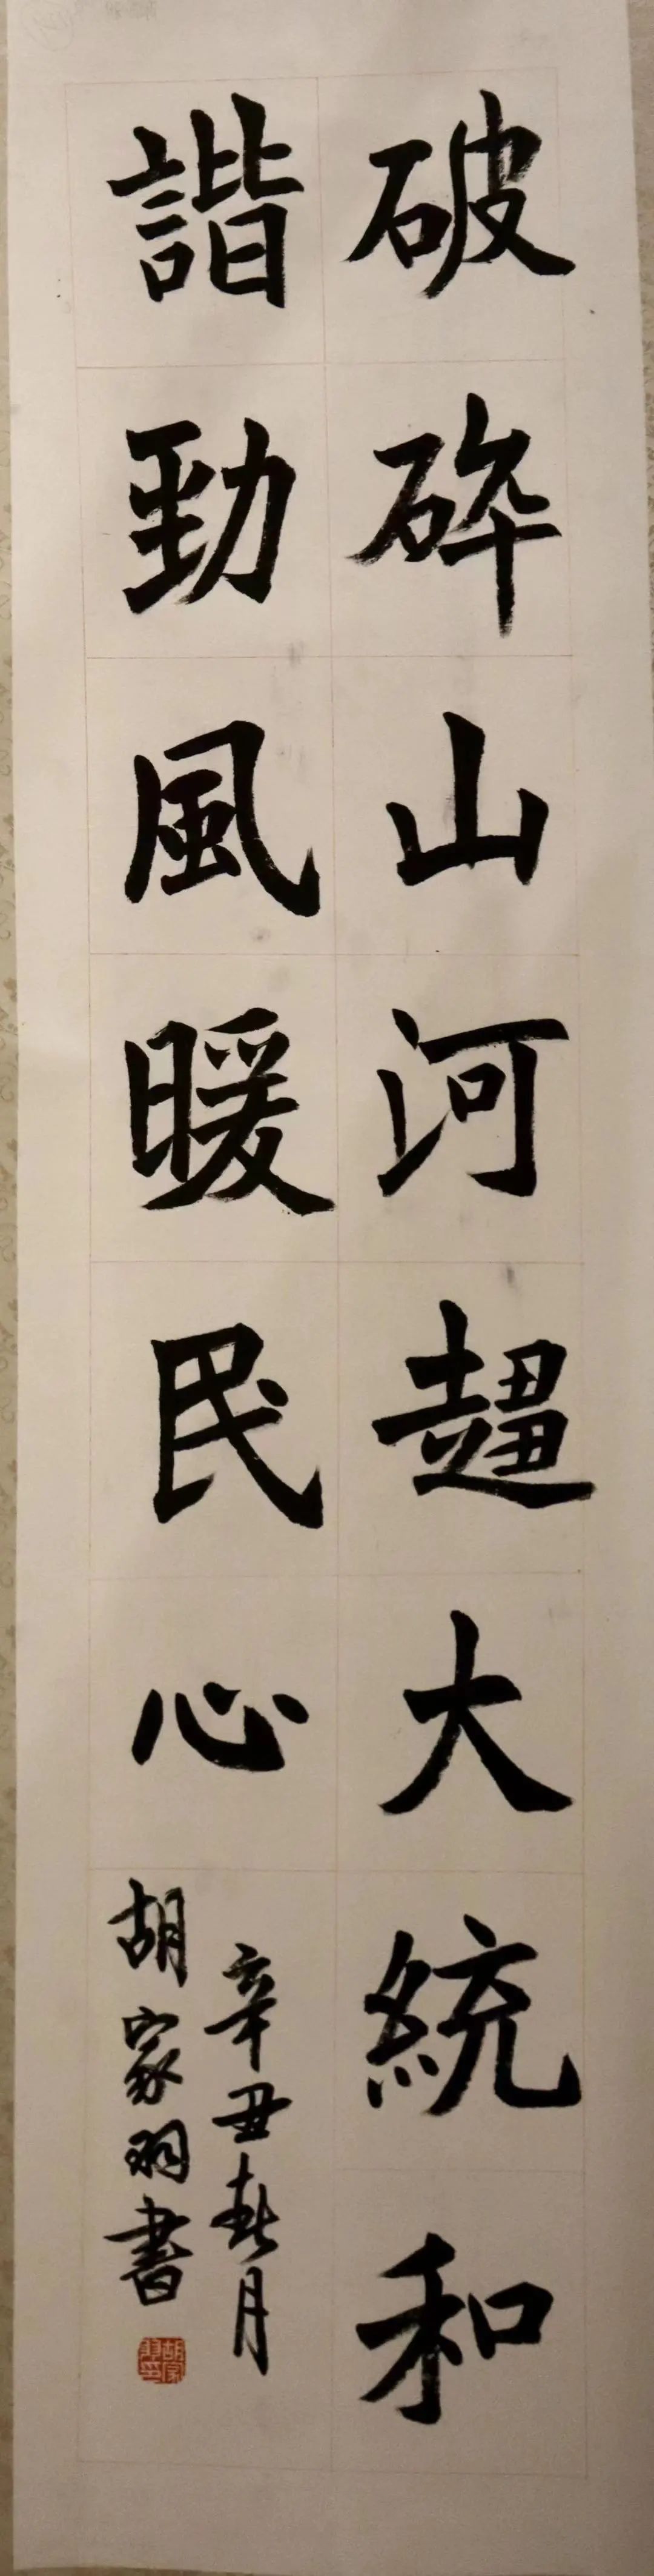 破碎山河趨大統和
諧勁風暖民心
辛丑春月
胡家羽書
胡家羽印